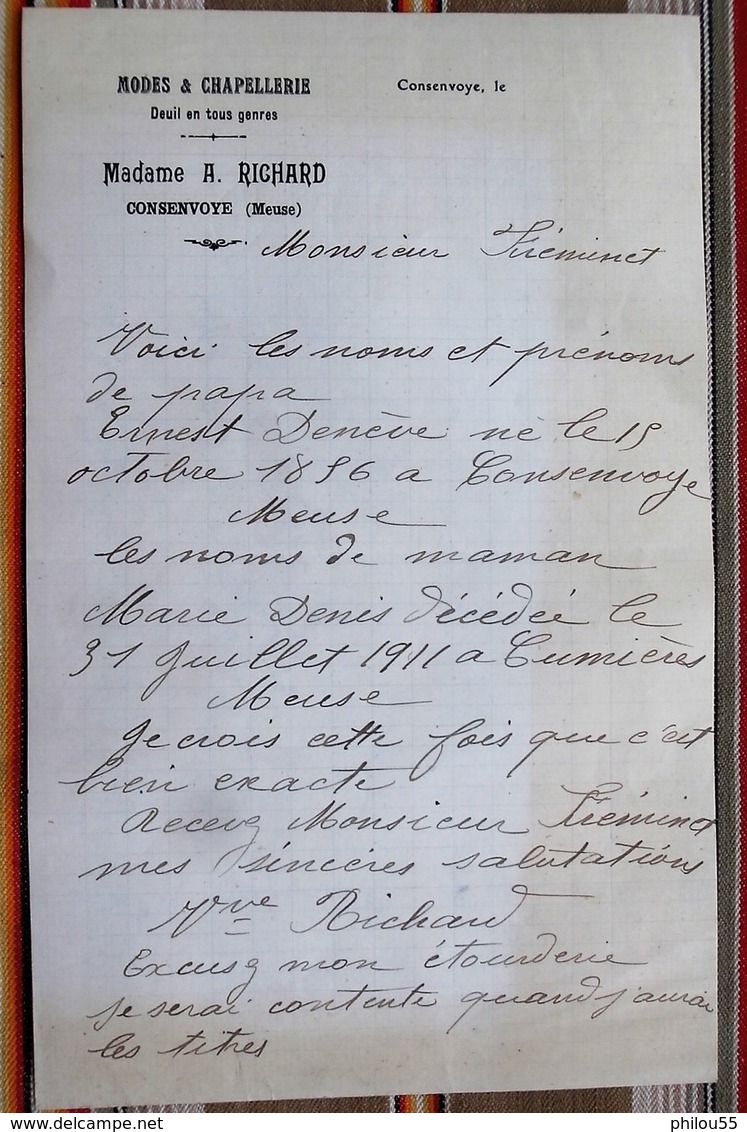 MODES & CHAPELLERIE
Deuil en tous genres
Consenvoye, le
Madame A. RICHARD
CONSENVOYE (Meuse)
Monsieur Fréminet
Voici les noms et prénoms
de papa
Ernest Denève né le 15
octobre 1856 a Consenvoye
Meuse
les noms de maman
Marie Denis décédée le
31 Juillet 1911 a Cumières
Meuse
Je crois cette fois que c'est
bien exacte
Recevez Monsieur Fréminet
mes sincères salutations
Vve Richard
Excusez mon étourderie
je serai contente quand j'aurai
les titres
philou55